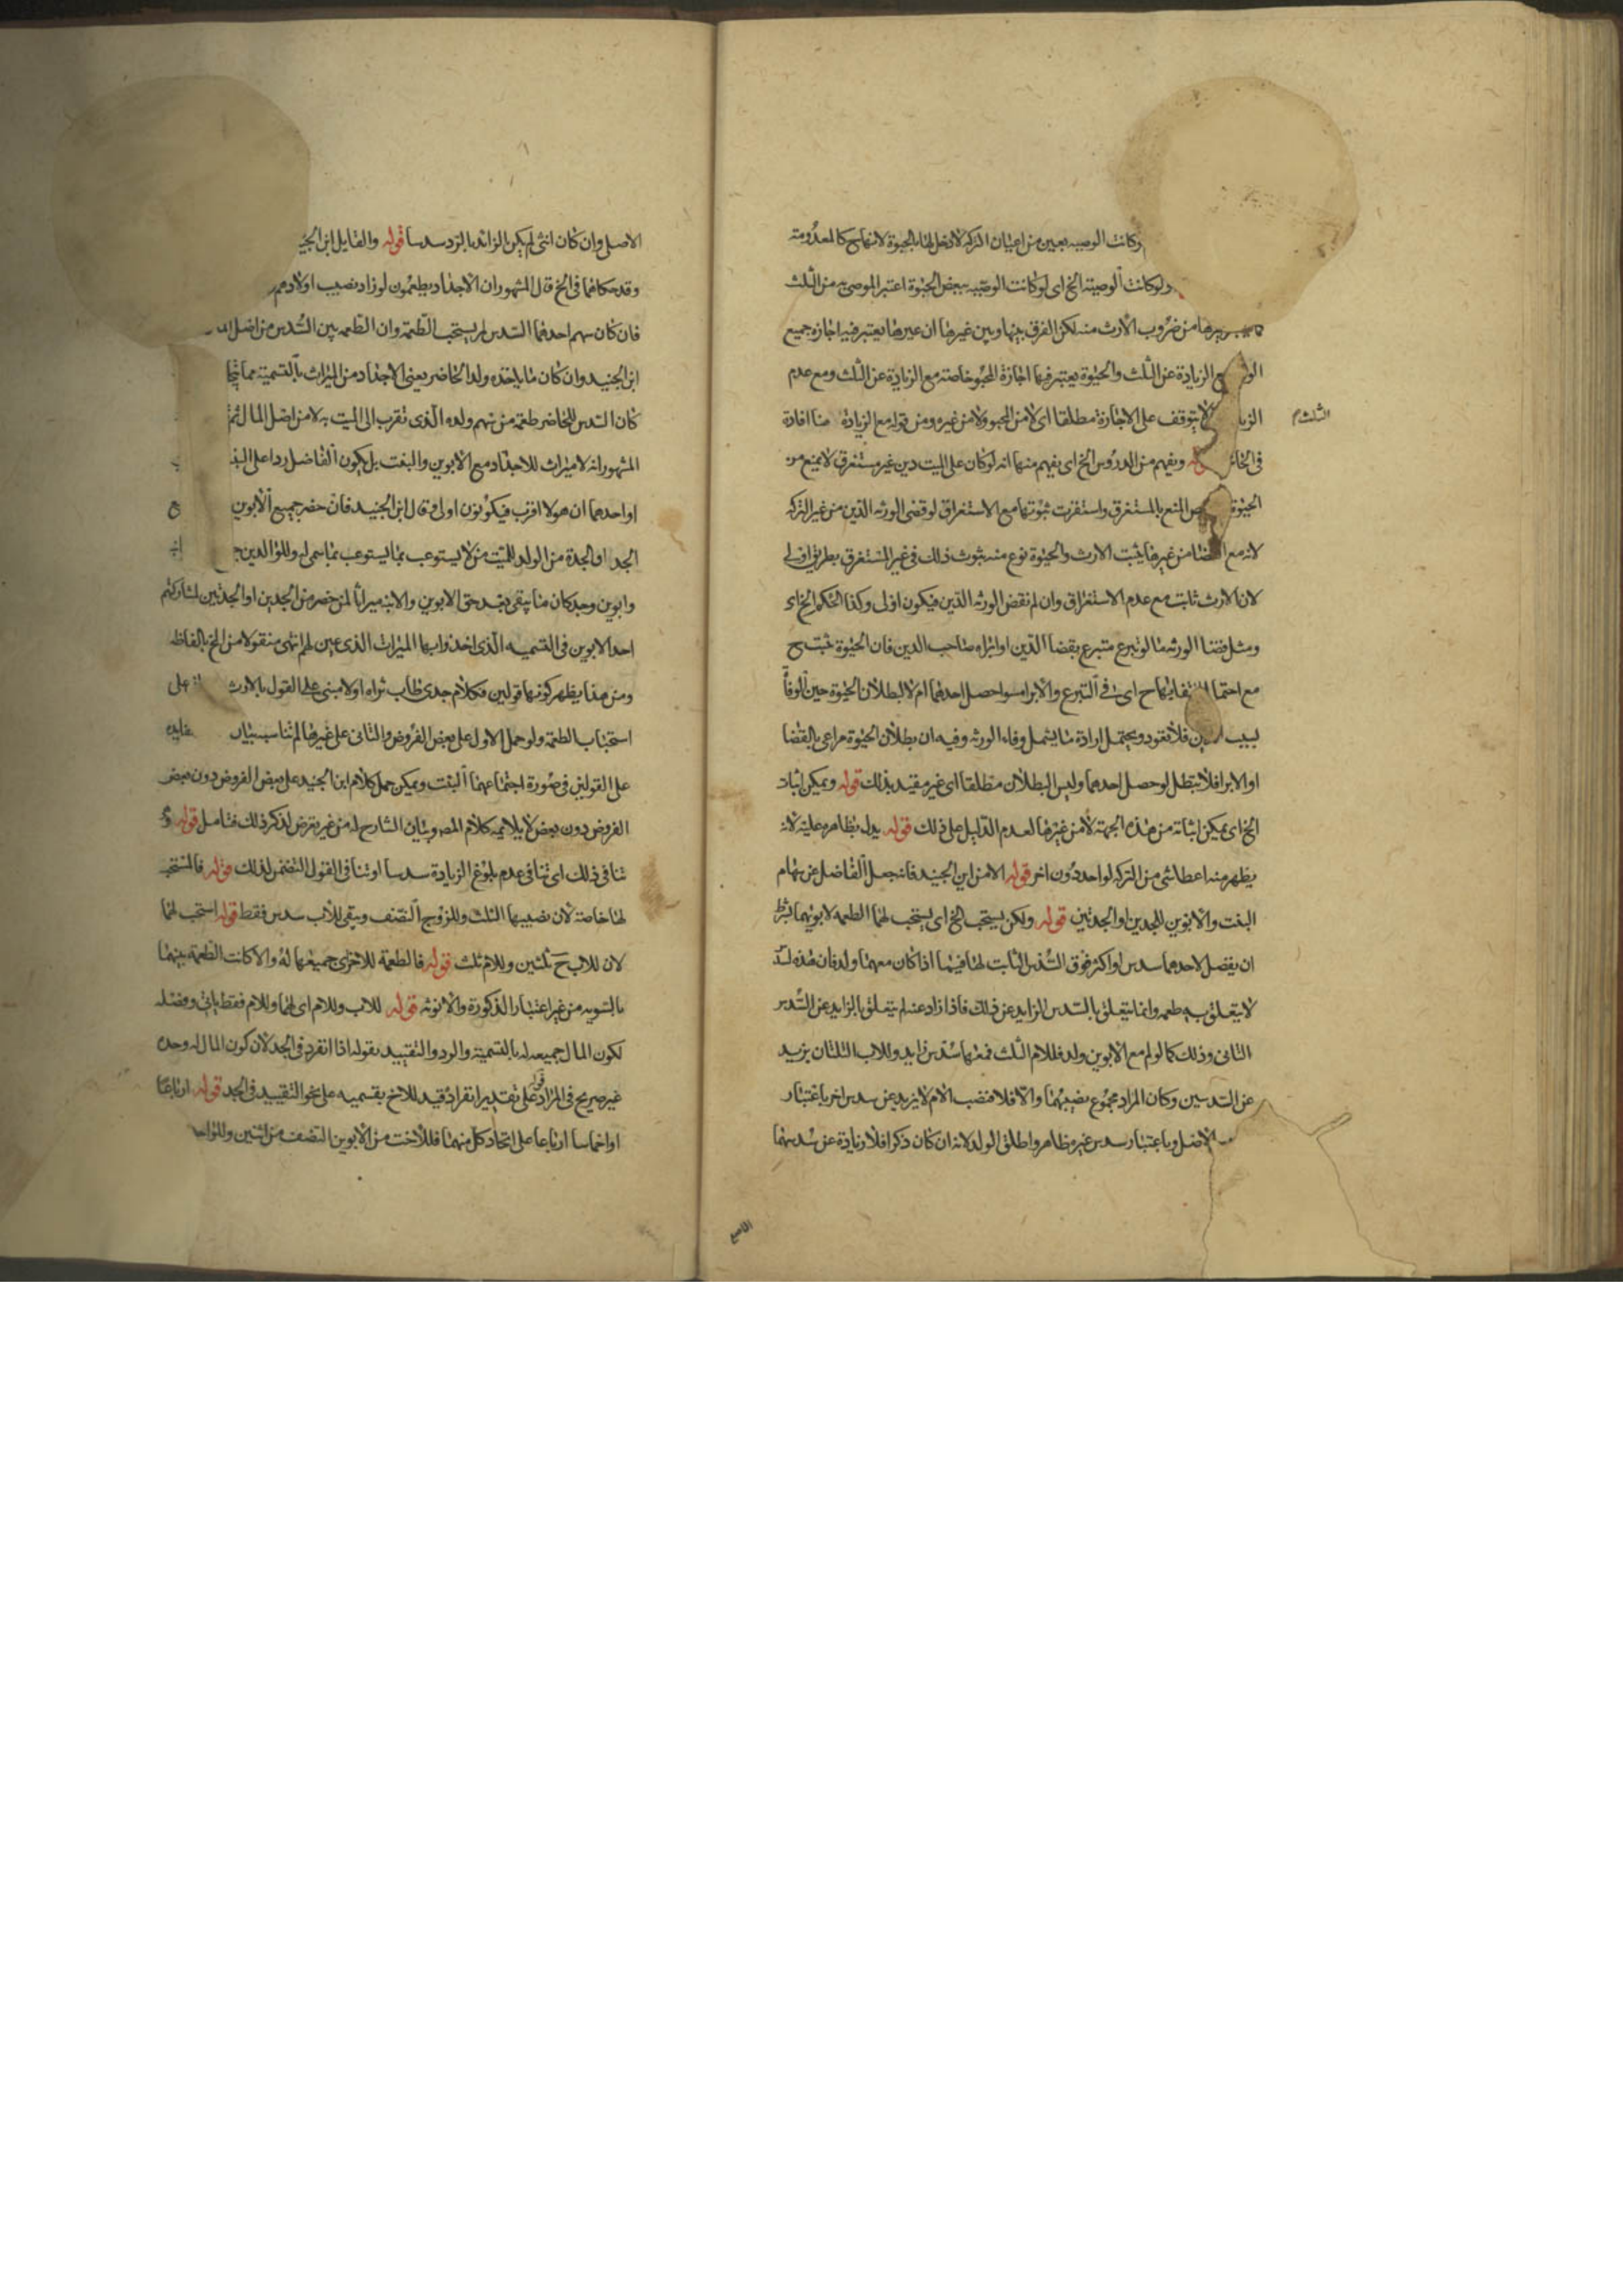 وكانت الوصيه بعين من اعيان التركه لا دخل لها بالحبوة لانها ح كالمعدومة
ولو كانت الوصية الخ اى لو كانت الوصيه ببعض الحبوة اعتبر الموصى به من الثلث
من ضروب الارث منه لكن الفرق بينها وبين غيرها ان غيرها يعتبر فيه اجازه جميع
الزيادة عن الثلث والحبوة يعتبر فيها اجازة المحبو خاصة مع الزيادة عن الثلث ومع عدم
لا يتوقف على الاجازة مطلقا اى لا من المحبو ولا من غيره ومن قوله مع الزيادة هنا افادة
الثلث م
ويفهم من الدروس الخ اى يفهم منها انه لو كان على الميت دين غير مستغرق لا يمنع من
الحبوة المنع بالمستغرق واستقرت ثبوتها مع الاستغراق لو قضى الورثه الدين من غير التركه
لانه مع من غيرها يثبت الارث والحبوة نوع منه بثبوت ذلك فى غير المستغرق بطريق اولى
لان الارث ثابت مع عدم الاستغراق وان لم نقض الورثه الدين فيكون اولى وكذا الحكم الخ اى
ومثل قضا الورثه ما لو تبرع متبرع بقضا الدين او ابراه صاحب الدين فان الحبوة تثبت ح
مع احتمال انتفايها ح اى فى التبرع والابرا سوا حصل احدهما ام لا لبطلان الحبوة حين الوفاة
بسبب الدين فلا تعود ويحتمل ارادة ما يشمل وفاء الورثه وفيه ان بطلان الحبوة مراعى بالقضا
او الابرا فلا تبطل لو حصل احدهما وليس البطلان مطلقا اى غير مقيد بذلك قوله ويمكن اثبات
الخ اى يمكن اثباته من هذه الجهة لا من غيرها لعدم الدليل على ذلك قوله يدل بظاهره عليه لانه
يظهر منه اعطا شى من التركه لواحد دون اخر قوله الا من ابن الجنيد فانه جعل الفاضل عن سهام
البنت والابوين للجدين او الجدتين قوله ولكن يستحب الخ اى يستحب لهما الطعمه لابويهما بشرط
ان يفضل لاحدهما سدس او اكثر فوق السدس الثابت لهما فيما اذا كان معهما ولد فان هذه لسدس
لا يتعلق به طعمه وانما يتعلق بالسدس الزايد عن ذلك فاذا زاد عنه لم يتعلق بالزايد عن السدس
الثانى وذلك كما لو لم مع الابوين ولد فللام الثلث فمعها سدس زايد وللاب الثلثان يزيد
عن السدسين وكان المراد مجموع نصيبهما والا فلا فنصيب الام لا يزيد عن سدس اخر باعتبار
الاصل وباعتبار سدس غير ظاهر واطلق الولد لانه ان كان ذكرا فلا زيادة عن سدسهما
الاصل
الاصل وان كان انثى لم يكن الزائد بالرد سدسا قوله والقايل ابن الجنيد
وقد حكاهما فى الخ قال المشهور ان الاجداد يطعمون لو زاد نصيب اولادهم
فان كان سهم احدهما السدس لم يستحب الطعمة وان الطعمه هى السدس من اصل
ابن الجنيد وان كان ما ياخذه ولد الحاضر يعنى الاجداد من الميراث بالتسمية مما
كان السدس للحاضر طعمة من سهم ولده الذى تقرب الى الميت به لا من اصل المال ثم
المشهور انه لا ميراث للاجداد مع الابوين والبنت بل يكون الفاضل ردا على البنت
او احدهما ان هولا اقرب فيكونون اولى وقال ابن الجنيد فان حضر جميع الابوين
الجد او الجدة من الولد للميت من لا يستوعب بما يستوعب بما سمى له وللوالدين
وابوين وجد كان ما يبقى بعد حق الابوين والابنة ميراثا لمن حضر من الجدين او الجدتين لمشاركتهم
احد الابوين فى التسميه الذى اخذوا بها الميراث الذى عين لهم انتهى منقولا من الخ بالفاظه
ومن هذا يظهر كونها قولين فكلام جدى طاب ثراه اولا مبنى على القول بالارث على
استحباب الطعمة ولو حمل الاول على بعض الفروض والثانى على غيرها لم تناسب بيان
على القولين فى صورة اجتماعهما البنت ويمكن حمل كلام ابن الجنيد على بعض الفروض دون بعض
الفروض دون بعض لا يلايمه كلام المص وبيان الشارح له من غير تعرض لذكر ذلك فتامل قوله و
تنافى ذلك اى تنافى عدم بلوغ الزيادة سدسا او تنافى القول التضمن لذلك قوله فالمستحب
لها خاصة لان نصيبها الثلث وللزوج النصف ويبقى للاب سدس فقط قوله استحب لهما
لان للاب ح ثلثين وللام ثلث قوله فالطعمة للاخرى جميعها له والا كانت الطعمة بينهما
بالسويه من غير اعتبار الذكورة والانوثه قوله للاب وللام اى لهما وللام فقط ياتى وفضله
لكون المال جميعه له بالتسمية والرد والتقييد بقوله اذا انفرد فى الجد لان كون المال له وحده
غير صريح فى المراد على تقدير انفراد قيد للاخ بقسميه على نحو التقييد فى الجد قوله ارباعا
او اخماسا ارباعا على اتحاد كل منهما فللاخت من الابوين النصف من اثنين وللواحد